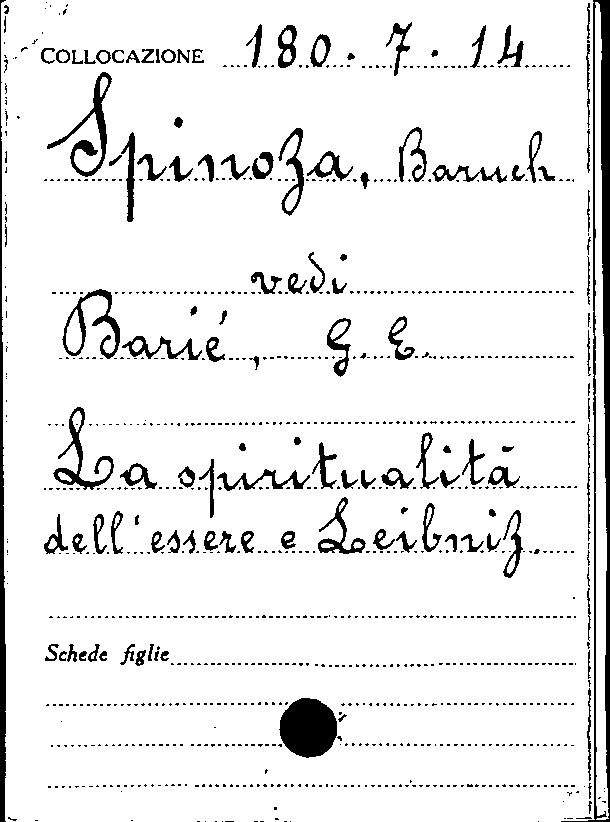 COLLOCAZIONE 180.7.14
Spinoza, Baruch
vedi
Barié, G. E.
La spiritualità
dell'essere e Leibniz.
Schede figlie